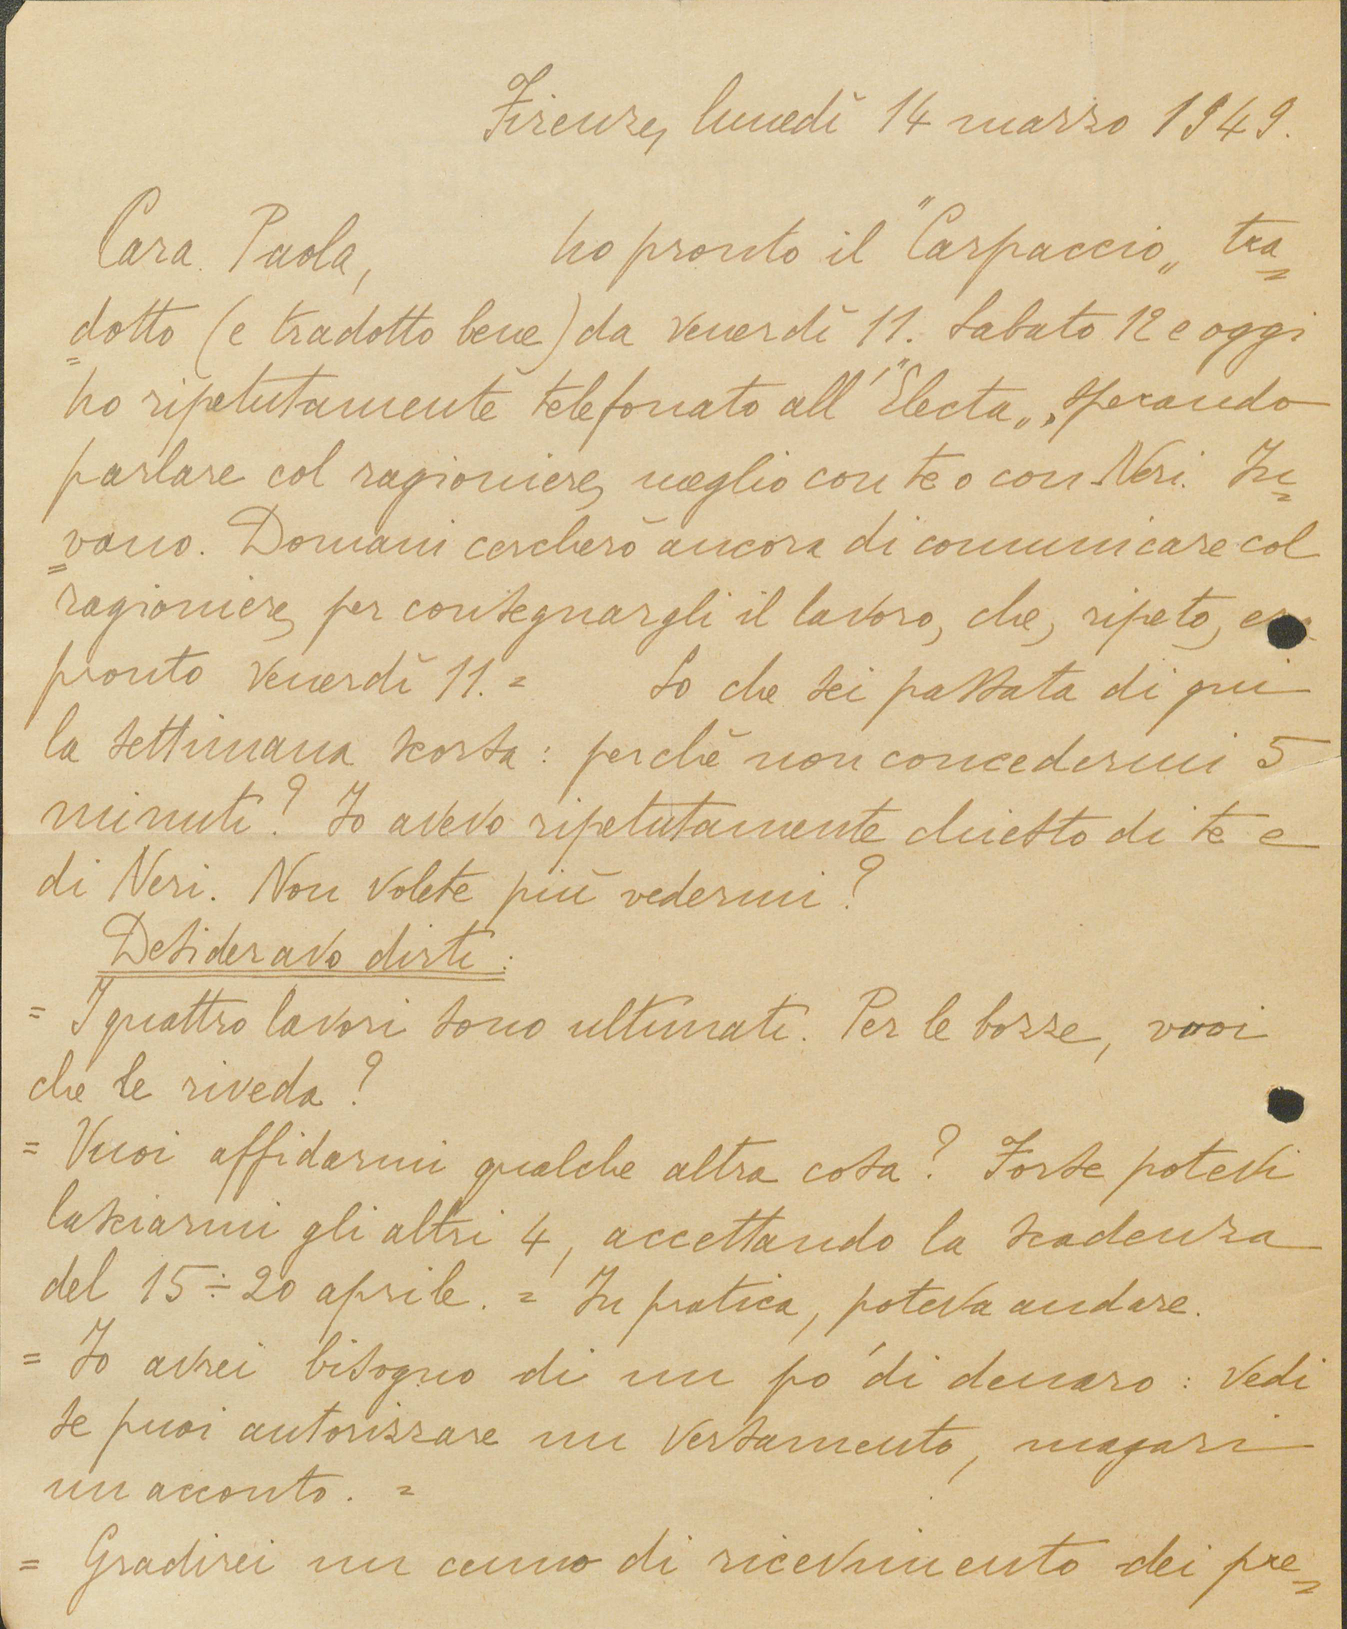 Firenze, lunedì 14 marzo 1949.
Cara Paola, ho pronto il "Carpaccio„ tra=
=dotto (e tradotto bene) da venerdì 11. Sabato 12 e oggi
ho ripetutamente telefonato all'"Electa„, sperando
parlare col ragioniere, meglio con te o con Neri. In=
=vano. Domani cercherò ancora di comunicare col
ragioniere, per consegnargli il lavoro, che, ripeto, era
pronto venerdì 11. = So che sei passata di qui
la settimana scorsa: perchè non concedermi 5
minuti? Io avevo ripetutamente chiesto di te e
di Neri. Non volete più vedermi?
Desideravo dirti:
= I quattro lavori sono ultimati. Per le bozze, vuoi
che le riveda?
= Vuoi affidarmi qualche altra cosa? Forse potevi
lasciarmi gli altri 4, accettando la scadenza
del 15÷20 aprile. = In pratica, poteva andare.
= Io avrei bisogno di un po' di denaro: vedi
se puoi autorizzare un versamento, magari
un acconto. =
= Gradirei un cenno di ricevimento dei pre=